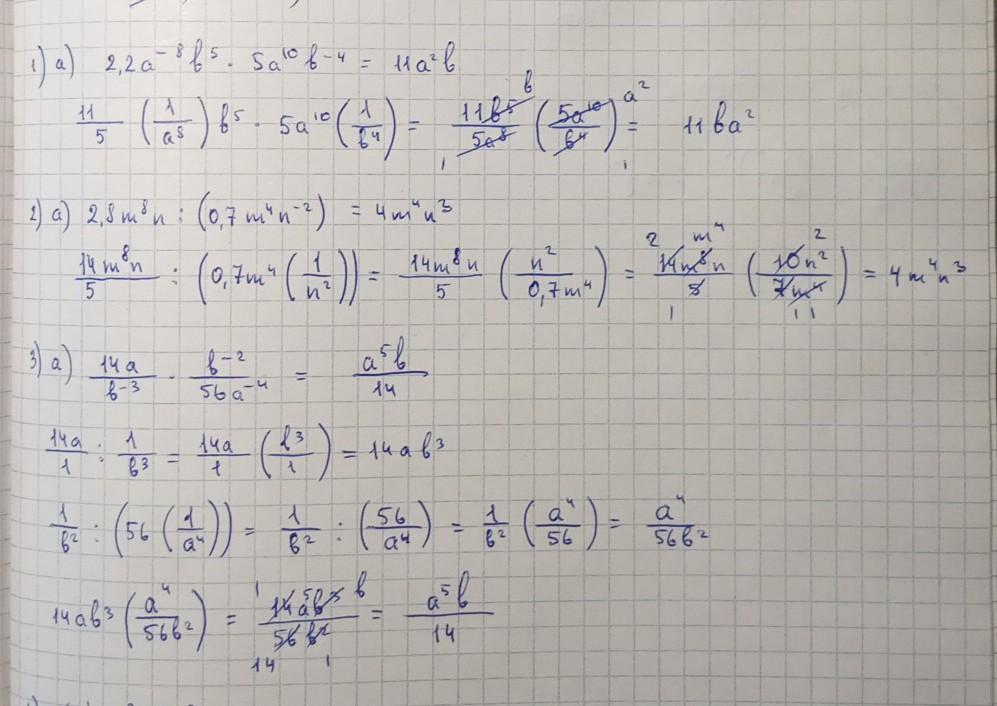 1) а) 2,2a⁻⁸b⁵ · 5a¹⁰b⁻⁴ = 11a²b
11/5 (1/a⁸) b⁵ · 5a¹⁰ (1/b⁴) = 11b⁵/5a⁸ (5a¹⁰/b⁴) = 11ba²
2) а) 2,8m⁸n : (0,7m⁴n⁻²) = 4m⁴n³
14m⁸n/5 : (0,7m⁴ (1/n²)) = 14m⁸n/5 (n²/0,7m⁴) = 14m⁸n/5 (10n²/7m⁴) = 4m⁴n³
3) а) 14a/b⁻³ · b⁻²/56a⁻⁴ = a⁵b/14
14a/1 : 1/b³ = 14a/1 (b³/1) = 14ab³
1/b² : (56 (1/a⁴)) = 1/b² : (56/a⁴) = 1/b² (a⁴/56) = a⁴/56b²
14ab³ (a⁴/56b²) = 14a⁵b³/56b² = a⁵b/14